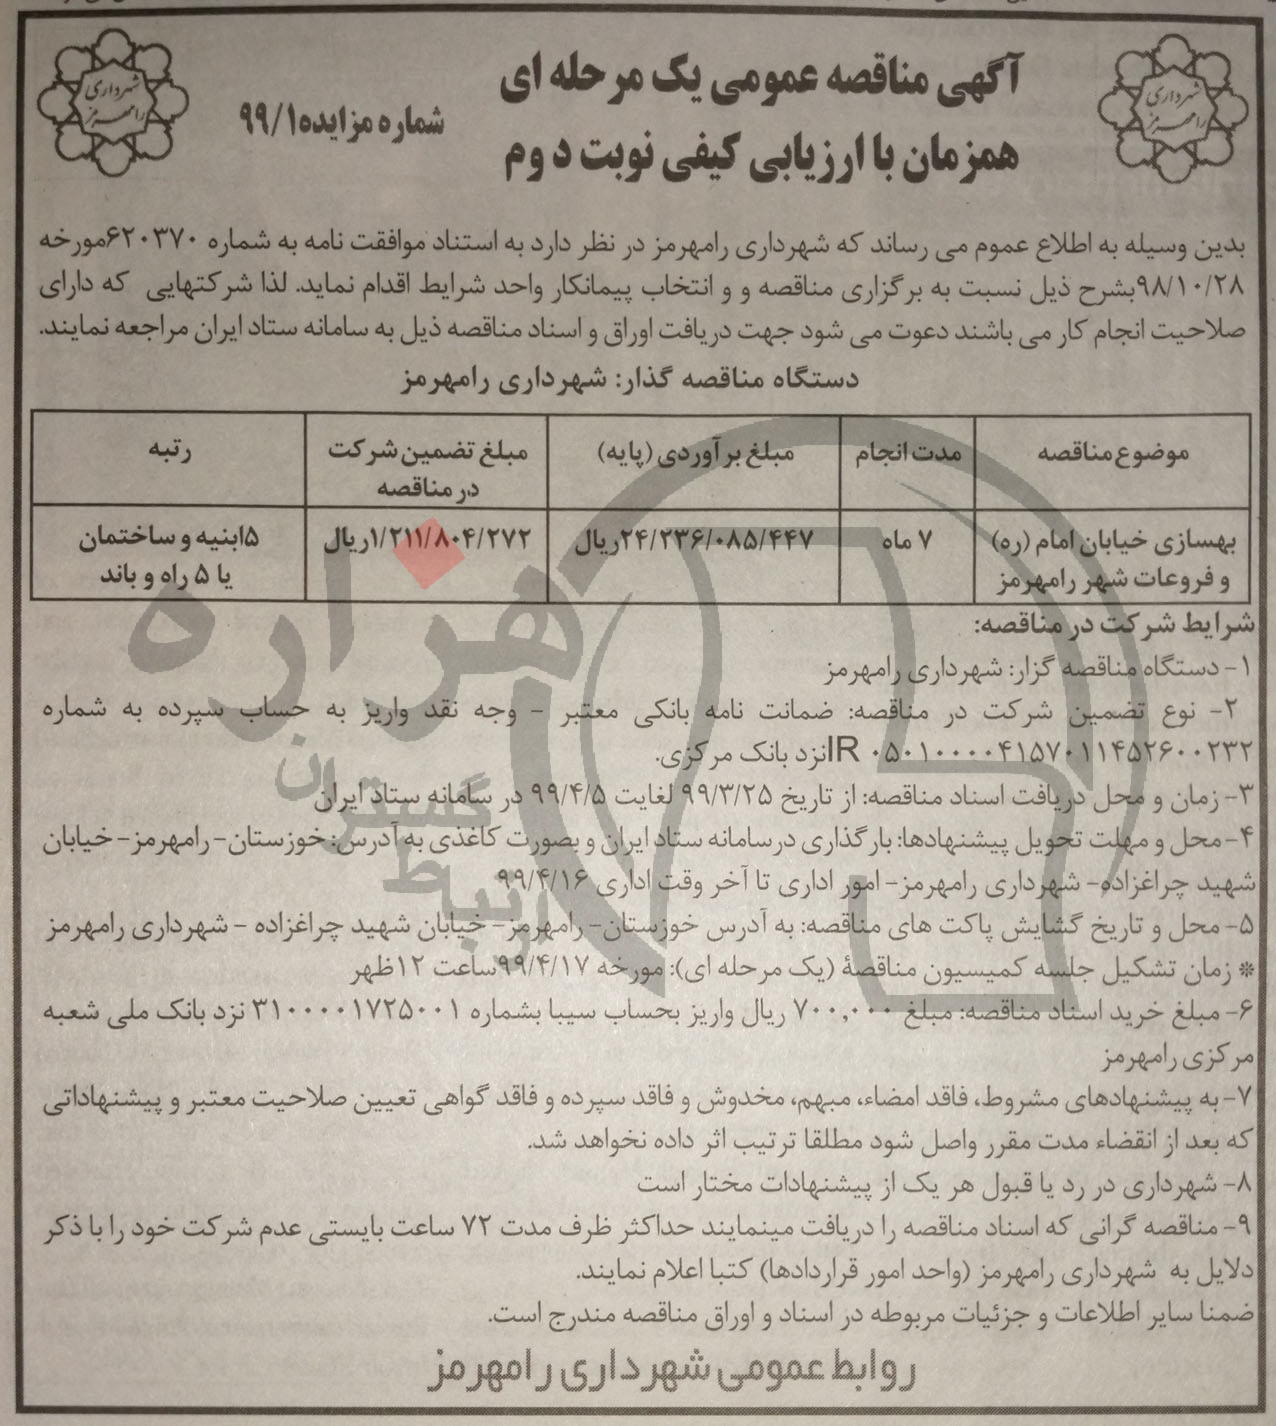 آگهی مناقصه عمومی یک مرحله ای
همزمان با ارزیابی کیفی نوبت دوم
شماره مزایده۹۹/۱
شهرداری رامهرمز
شهرداری رامهرمز
بدین وسیله به اطلاع عموم می رساند که شهرداری رامهرمز در نظر دارد به استناد موافقت نامه به شماره ۶۲۰۳۷۰مورخه
۹۸/۱۰/۲۸بشرح ذیل نسبت به برگزاری مناقصه و و انتخاب پیمانکار واحد شرایط اقدام نماید. لذا شرکتهایی که دارای
صلاحیت انجام کار می باشند دعوت می شود جهت دریافت اوراق و اسناد مناقصه ذیل به سامانه ستاد ایران مراجعه نمایند.
دستگاه مناقصه گذار: شهرداری رامهرمز
موضوع مناقصه
مدت انجام
مبلغ برآوردی (پایه)
مبلغ تضمین شرکت
در مناقصه
رتبه
بهسازی خیابان امام (ره)
و فروعات شهر رامهرمز
۷ ماه
۲۴/۲۳۶/۰۸۵/۴۴۷ریال
۱/۲۱۱/۸۰۴/۲۷۲ریال
۵ابنیه و ساختمان
یا ۵ راه و باند
شرایط شرکت در مناقصه:
۱- دستگاه مناقصه گزار: شهرداری رامهرمز
۲- نوع تضمین شرکت در مناقصه: ضمانت نامه بانکی معتبر - وجه نقد واریز به حساب سپرده به شماره
IR ۰۵۰۱۰۰۰۰۴۱۵۷۰۱۱۴۵۲۶۰۰۲۳۲نزد بانک مرکزی.
۳- زمان و محل دریافت اسناد مناقصه: از تاریخ ۹۹/۳/۲۵ لغایت ۹۹/۴/۵ در سامانه ستاد ایران
۴- محل و مهلت تحویل پیشنهادها: بارگذاری درسامانه ستاد ایران و بصورت کاغذی به آدرس: خوزستان- رامهرمز- خیابان
شهید چراغزاده- شهرداری رامهرمز- امور اداری تا آخر وقت اداری ۹۹/۴/۱۶
۵- محل و تاریخ گشایش پاکت های مناقصه: به آدرس خوزستان- رامهرمز- خیابان شهید چراغزاده - شهرداری رامهرمز
* زمان تشکیل جلسه کمیسیون مناقصهٔ (یک مرحله ای): مورخه ۹۹/۴/۱۷ساعت ۱۲ظهر
۶- مبلغ خرید اسناد مناقصه: مبلغ ۷۰۰,۰۰۰ ریال واریز بحساب سیبا بشماره ۳۱۰۰۰۰۱۷۲۵۰۰۱ نزد بانک ملی شعبه
مرکزی رامهرمز
۷- به پیشنهادهای مشروط، فاقد امضاء، مبهم، مخدوش و فاقد سپرده و فاقد گواهی تعیین صلاحیت معتبر و پیشنهاداتی
که بعد از انقضاء مدت مقرر واصل شود مطلقا ترتیب اثر داده نخواهد شد.
۸- شهرداری در رد یا قبول هر یک از پیشنهادات مختار است
۹- مناقصه گرانی که اسناد مناقصه را دریافت مینمایند حداکثر ظرف مدت ۷۲ ساعت بایستی عدم شرکت خود را با ذکر
دلایل به شهرداری رامهرمز (واحد امور قراردادها) کتبا اعلام نمایند.
ضمنا سایر اطلاعات و جزئیات مربوطه در اسناد و اوراق مناقصه مندرج است.
روابط عمومی شهرداری رامهرمز
هزاره
ارتباط
گستران